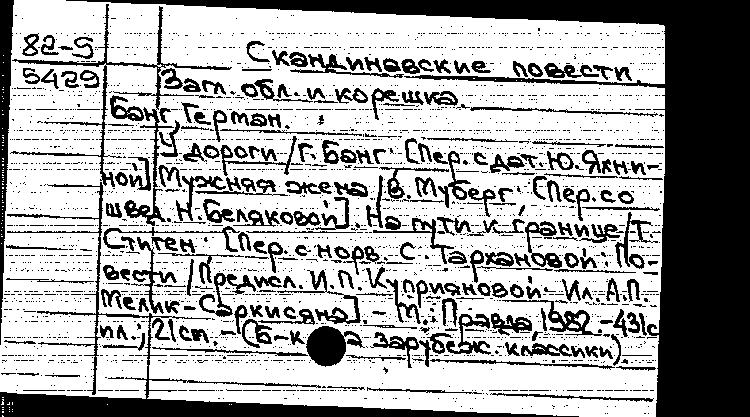 82-9
5429
Скандинавские повести.
Загл. обл. и корешка.
Банг, Герман.
У дороги / Г. Банг. [Пер. с дат. Ю. Яхни-
ной]. Мужняя жена / В. Муберг; [Пер. со
швед. Н. Беляковой]. На пути к границе / Т.
Стиген. [Пер. с норв. С. Тархановой: По-
вести / Предисл. И.П. Куприяновой. Ил. А.П.
Мелик-Саркисяна]. – М.: Правда, 1982. – 431с
ил.; 21 см. – (Б-к а зарубеж. классики).